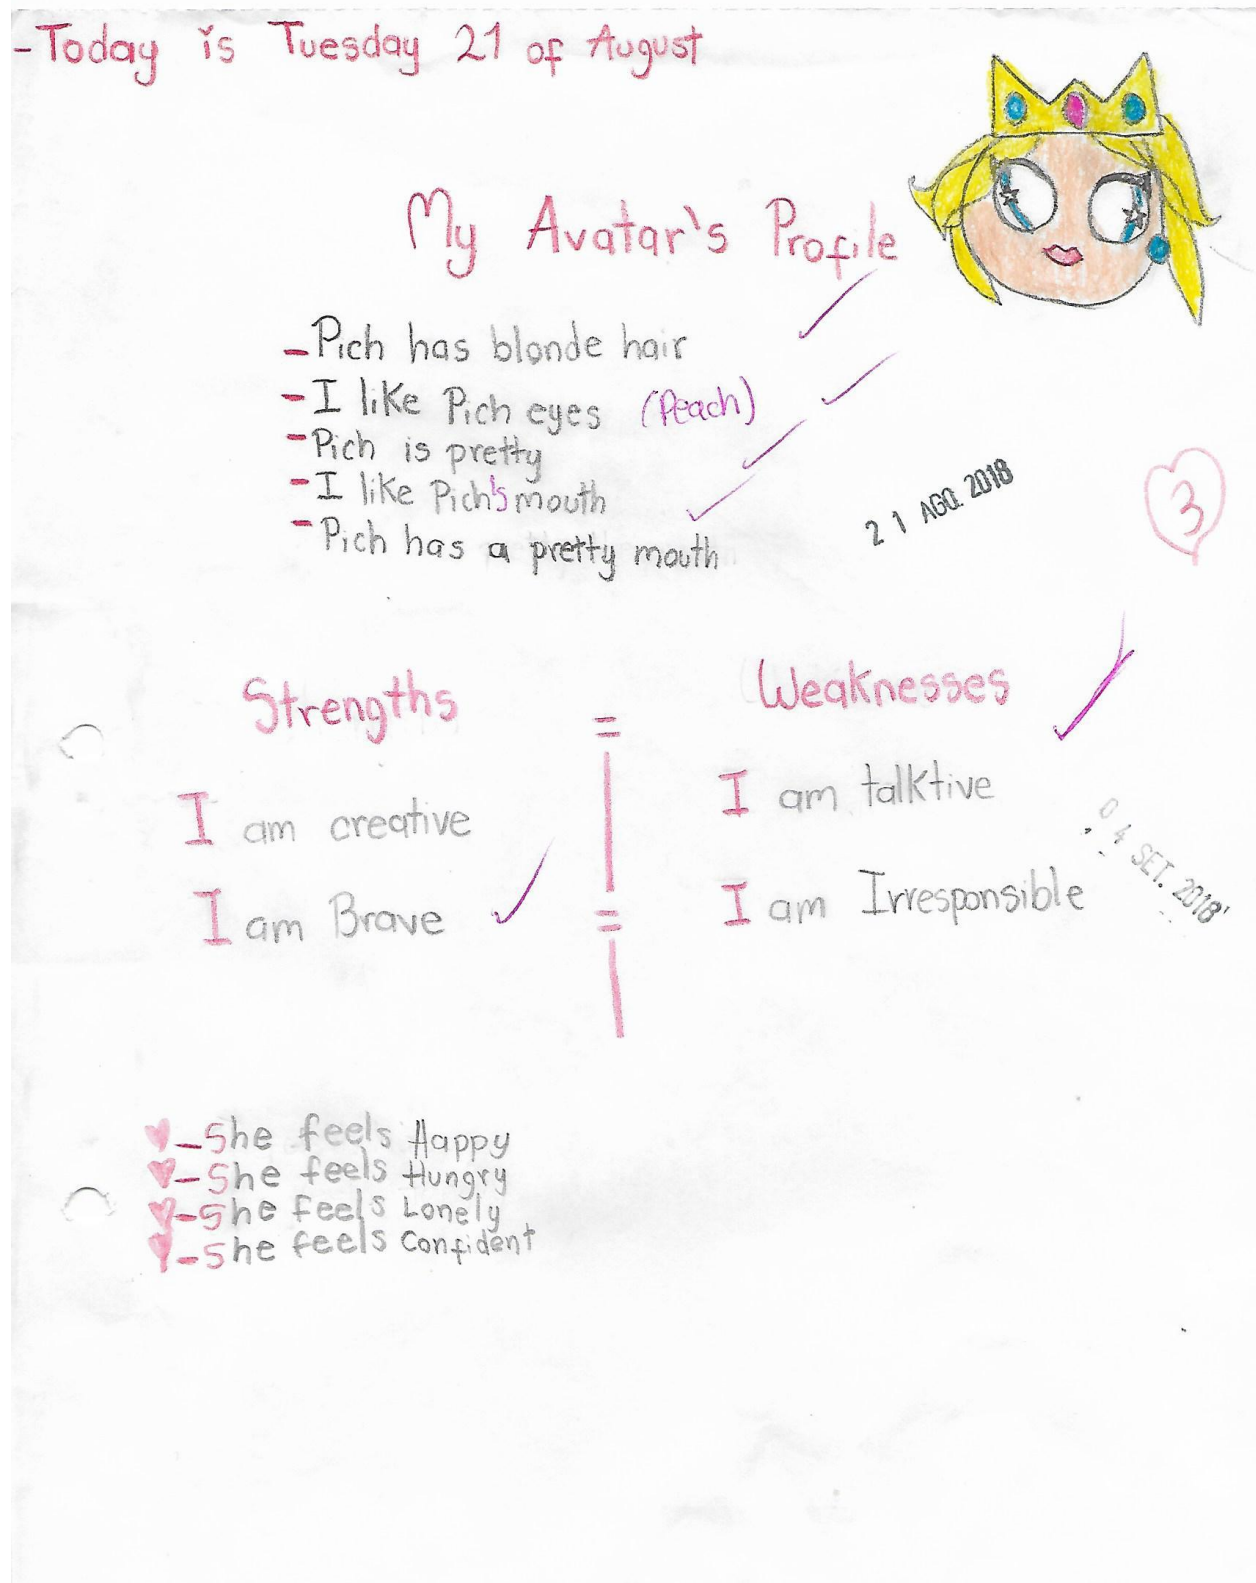 -Today is Tuesday 21 of August
My Avatar's Profile
-Pich has blonde hair
-I like Pich eyes (Peach)
-Pich is pretty
-I like Pich's mouth
-Pich has a pretty mouth
21 AGO. 2018
3
Strengths = Weaknesses
I am creative I am talktive
04 SET. 2018
I am Brave = I am Irresponsible
-She feels Happy
-She feels Hungry
-She feels Lonely
-She feels Confident